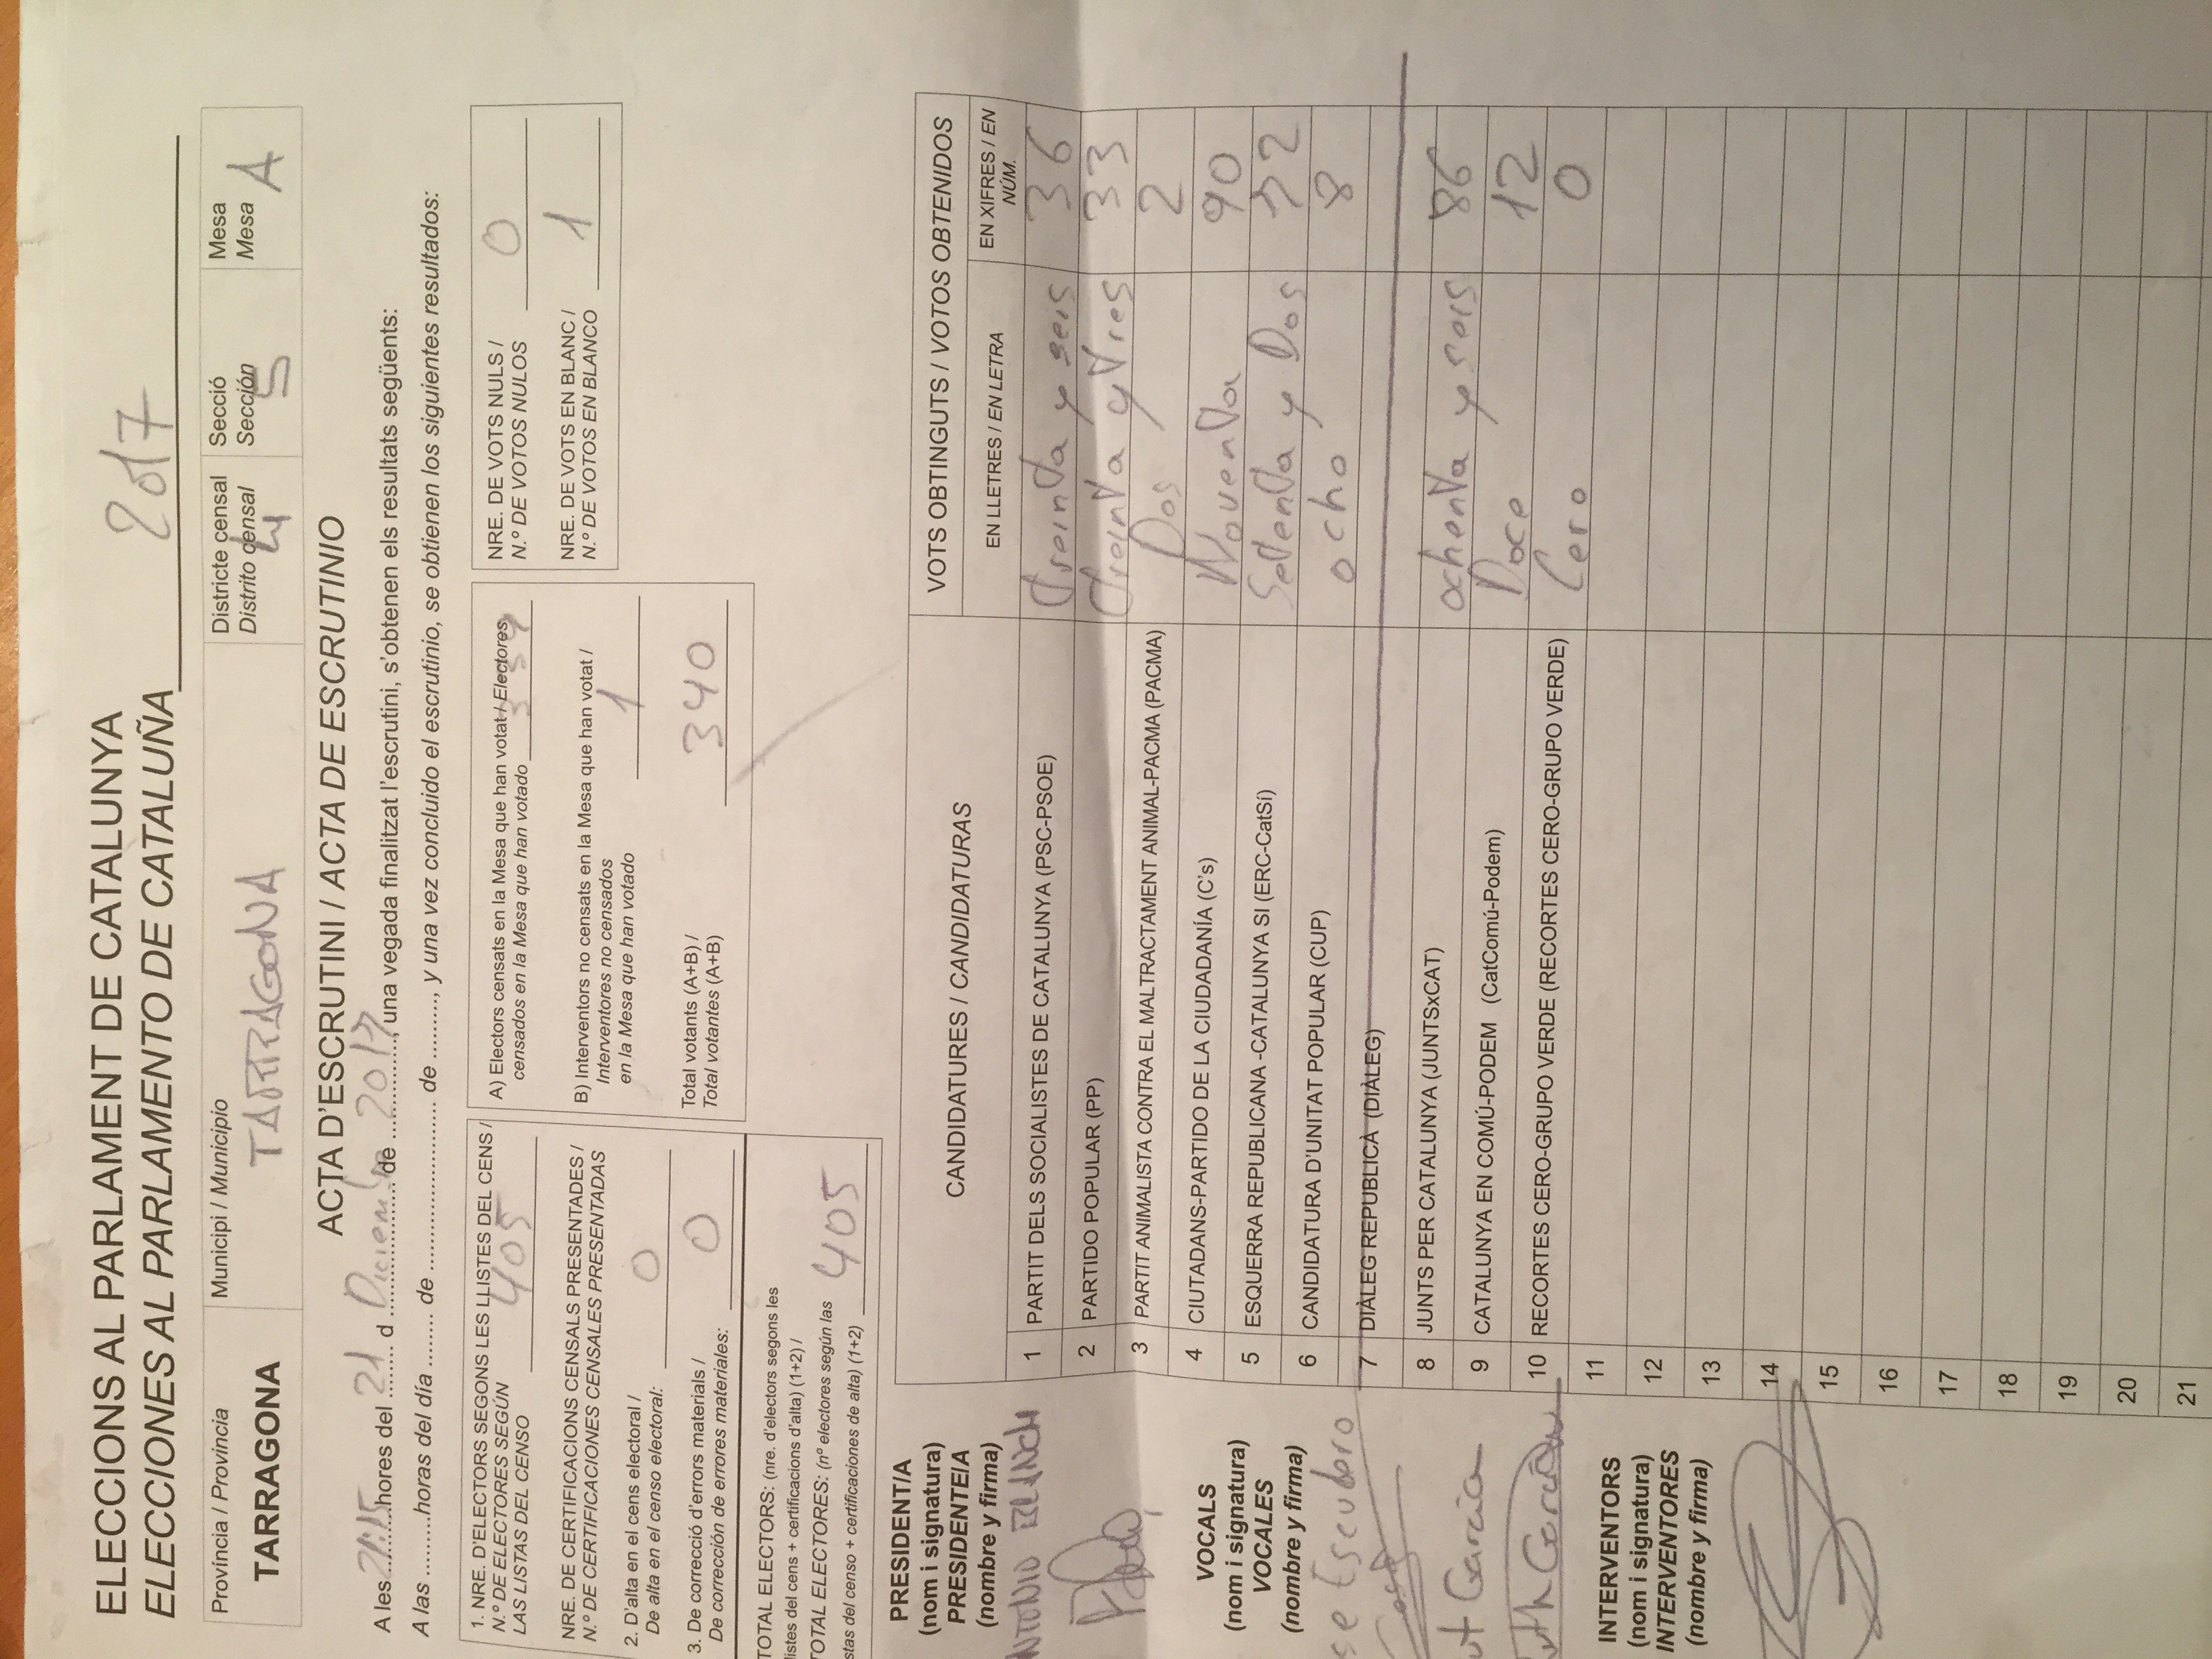 ELECCIONS AL PARLAMENT DE CATALUNYA
ELECCIONES AL PARLAMENTO DE CATALUÑA 2017
Província / Provincia Municipi / Municipio Districte censal Secció Mesa
Distrito censal Sección Mesa
TARRAGONA TARRAGONA 4 5 A
ACTA D'ESCRUTINI / ACTA DE ESCRUTINIO
A les 21:15 hores del 21 d Diciembre de 2017, una vegada finalitzat l'escrutini, s'obtenen els resultats següents:
A las .........horas del día ........ de ........................ de ........., y una vez concluido el escrutinio, se obtienen los siguientes resultados:
1. NRE. D'ELECTORS SEGONS LES LLISTES DEL CENS /
N.º DE ELECTORES SEGÚN
LAS LISTAS DEL CENSO 405
NRE. DE CERTIFICACIONS CENSALS PRESENTADES /
N.º DE CERTIFICACIONES CENSALES PRESENTADAS
2. D'alta en el cens electoral /
De alta en el censo electoral: 0
3. De correcció d'errors materials /
De corrección de errores materiales: 0
TOTAL ELECTORS: (nre. d'electors segons les
listes del cens + certificacions d'alta) (1+2) /
TOTAL ELECTORES: (nº electores según las
stas del censo + certificaciones de alta) (1+2) 405
A) Electors censats en la Mesa que han votat / Electores
censados en la Mesa que han votado 339
B) Interventors no censats en la Mesa que han votat /
Interventores no censados
en la Mesa que han votado 1
Total votants (A+B) /
Total votantes (A+B) 340
NRE. DE VOTS NULS /
N.º DE VOTOS NULOS 0
NRE. DE VOTS EN BLANC /
N.º DE VOTOS EN BLANCO 1
PRESIDENT/A
(nom i signatura)
PRESIDENTE/A
(nombre y firma)
NTONIO BLANCH
VOCALS
(nom i signatura)
VOCALES
(nombre y firma)
se Escudero
ut Garcia
uth Garcia
INTERVENTORS
(nom i signatura)
INTERVENTORES
(nombre y firma)
CANDIDATURES / CANDIDATURAS VOTS OBTINGUTS / VOTOS OBTENIDOS
EN LLETRES / EN LETRA EN XIFRES / EN
NÚM.
1 PARTIT DELS SOCIALISTES DE CATALUNYA (PSC-PSOE) Treinta y seis 36
2 PARTIDO POPULAR (PP) Treinta y Tres 33
3 PARTIT ANIMALISTA CONTRA EL MALTRACTAMENT ANIMAL-PACMA (PACMA) Dos 2
4 CIUTADANS-PARTIDO DE LA CIUDADANÍA (C's) Noventa 90
5 ESQUERRA REPUBLICANA -CATALUNYA SI (ERC-CatSí) Setenta y Dos 72
6 CANDIDATURA D'UNITAT POPULAR (CUP) ocho 8
7 DIÀLEG REPUBLICÀ (DIÀLEG)
8 JUNTS PER CATALUNYA (JUNTSxCAT) ochenta y seis 86
9 CATALUNYA EN COMÚ-PODEM (CatComú-Podem) Doce 12
10 RECORTES CERO-GRUPO VERDE (RECORTES CERO-GRUPO VERDE) Cero 0
11
12
13
14
15
16
17
18
19
20
21